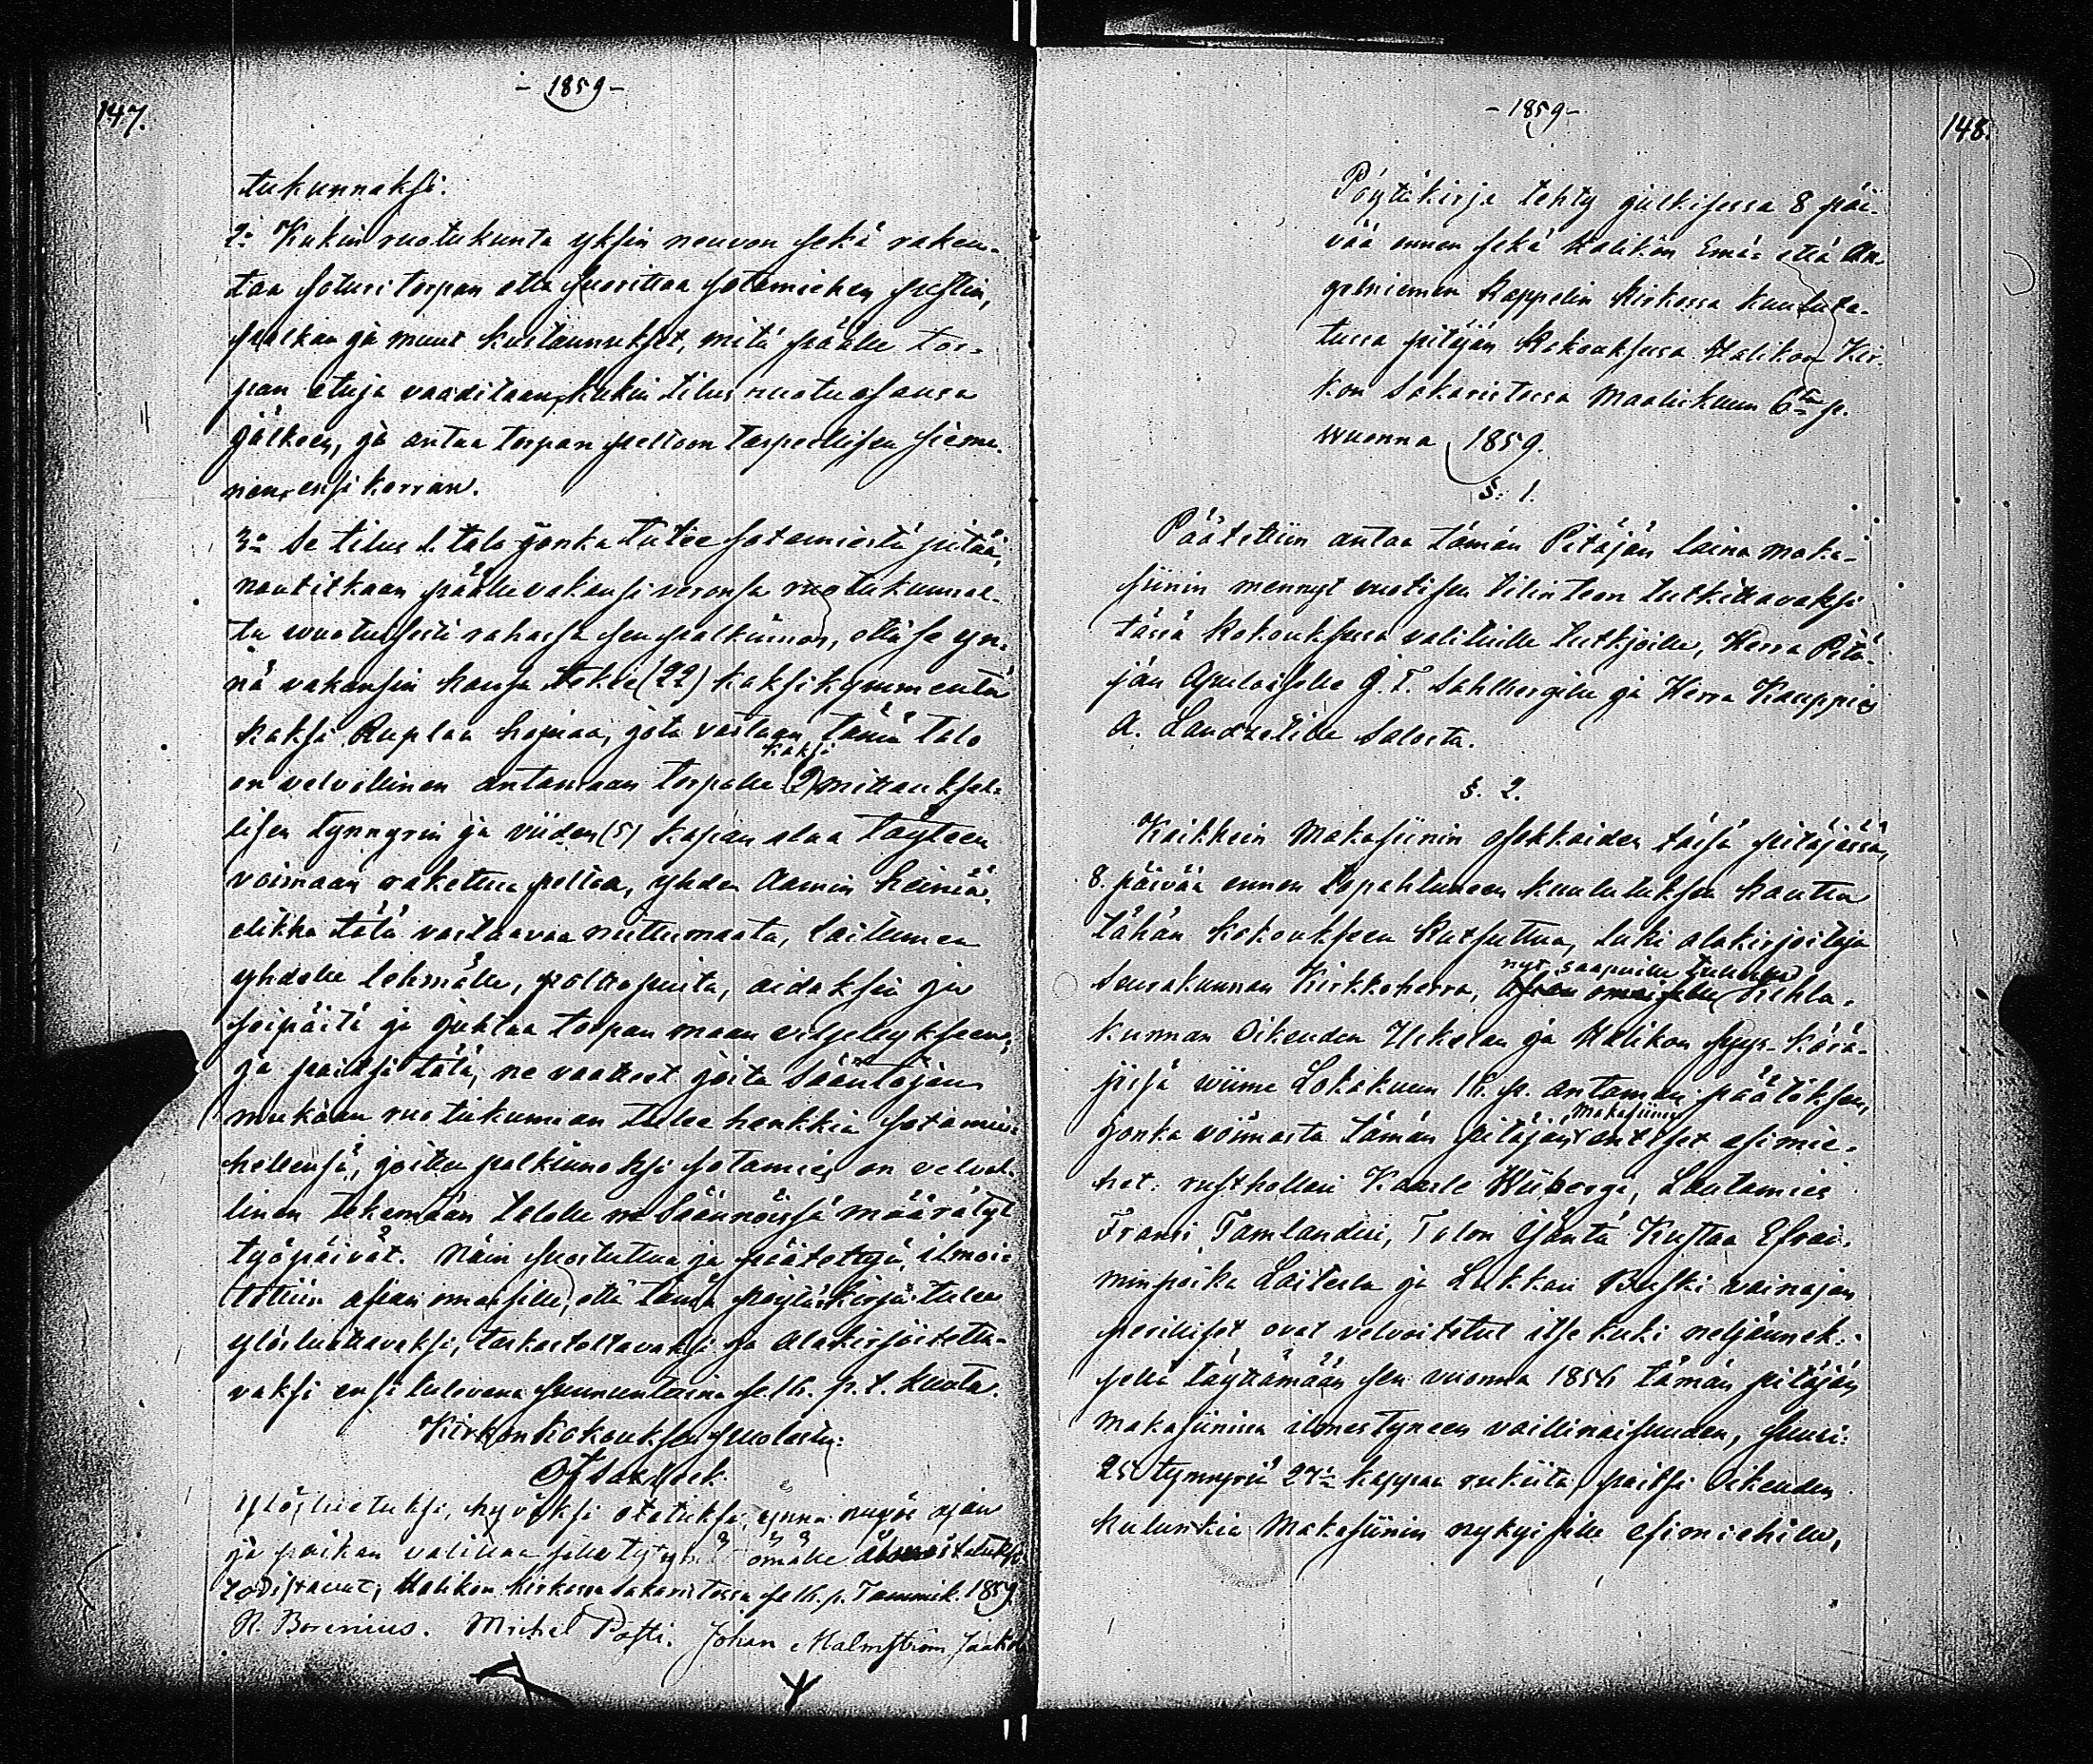 147.
- 1859 -
tukunnaksi.
2:o Kukin ruotukunta yksin neuvon sekä raken-
taa soturitorpan että suorittaa sotamiehen pestin,
palkan ja muut kustannukset, mitä päälle tor-
pan etuja vaaditaan, kukin tilus ruotuosansa
jälkeen, ja antaa torpan peltoon tarpeellisen sieme-
nen ensi kerran.
3:o Se tilus l. talo jonka tulee sotamiestä pitää,
nautitkaan päälle vakansi veronsa ruotukunnal-
ta vuotuisesti rahassa sen palkinnon, että se yn-
nä vakansin kansa tekee (22) kaksikymmentä
kaksi Ruplaa hopiaa, jota vastaan tämä talo
on velvollinen antamaan torpalle kaksi (2) mittauksel-
lisen tynnyrin ja viiden (5) kapan alaa täyteen
voimaan raketua peltoa, yhden Aamin heiniä,
elikkä tätä vastaavaa niittumaata, laitumen
yhdelle lehmälle, polttopuita, aidaksia ja
seipäitä ja juhtaa torpan maan viljelykseen,
ja paitsi tätä, ne vaatteet joita Sääntöjen
mukaan ruotukunnan tulee hankkia sotamie-
hellensä, joitten palkinnoksi sotamies on velvol-
linen tekemään talolle ne Säännöissä määrätyt
työpäivät. Näin suostuttua ja päätettyä, ilmoi-
tettiin asian omaisille, että tämä pöytäkirja tulee
ylösluettavaksi, tarkastettavaksi ja alakirjoitetta-
vaksi ensi tulevana sunnuntaina se 16. p. t. kuuta.
Kirkonkokouksen puolesta:
Ylösluetuksi, hyväksi otetuksi, ynnä myös ajan
ja paikan valittaa sille
todistavat, Halikon kirkossa Sakaristossa se 16. p. Tammik. 1859.
N. Borenius. Michel Posti. Johan Malmström Jaakko
148.
- 1859 -
Pöytäkirja tehty julkisessa 8 päi-
vää ennen sekä Halikon Emä- että An-
gelniemen Kappelin Kirkossa kuulute-
tussa pitäjän Kokouksessa Halikon Kir-
kon Sakaristossa Maaliskuun 6:ta p.
wuonna 1859.
§. 1.
Päätettiin antaa tämän Pitäjän laina maka-
siinin mennyt vuotisen tilin teon tutkittavaksi
tässä Kokouksessa valituille tutkijoille, Herra Pitä-
jän Apulaiselle J. T. Sahlbergille ja Herra Kauppies
A. Landzetille Salosta.
§. 2.
Kaikkein Makasiinin osakkaiden tässä pitäjässä,
8. päivää ennen tapahtuneen kuulutuksen kautta
tähän kokoukseen kutsuttua, luki alakirjoittaja
Seurakunnan Kirkkoherra, nyt saapuille tulleille Kihla-
kunnan Oikeuden Uskelan ja Halikon syys-Kärä-
jissä wiime Lokakuun 16. p. antaman päätöksen,
jonka voimasta tämän pitäjän Makasiinin entiset esimie-
het: rusthollari Kaarle Wiiberge, Lautamies
Fransi Tamlanderi, Talon Isäntä Kustaa Efrai-
minpoika Laitela ja Lukkari Buski vainajan
perilliset ovat velvoitetut itse kuki neljännek-
sellä täyttämään sen vuonna 1856 tämän pitäjän
makasiinissa ilmestyneen vaillinaisuuden, suuri:
25 tynnyriä 27½ kappaa rukiita, paitsi Oikeuden
kulunkia Makasiinin nykyisille esimiehille,